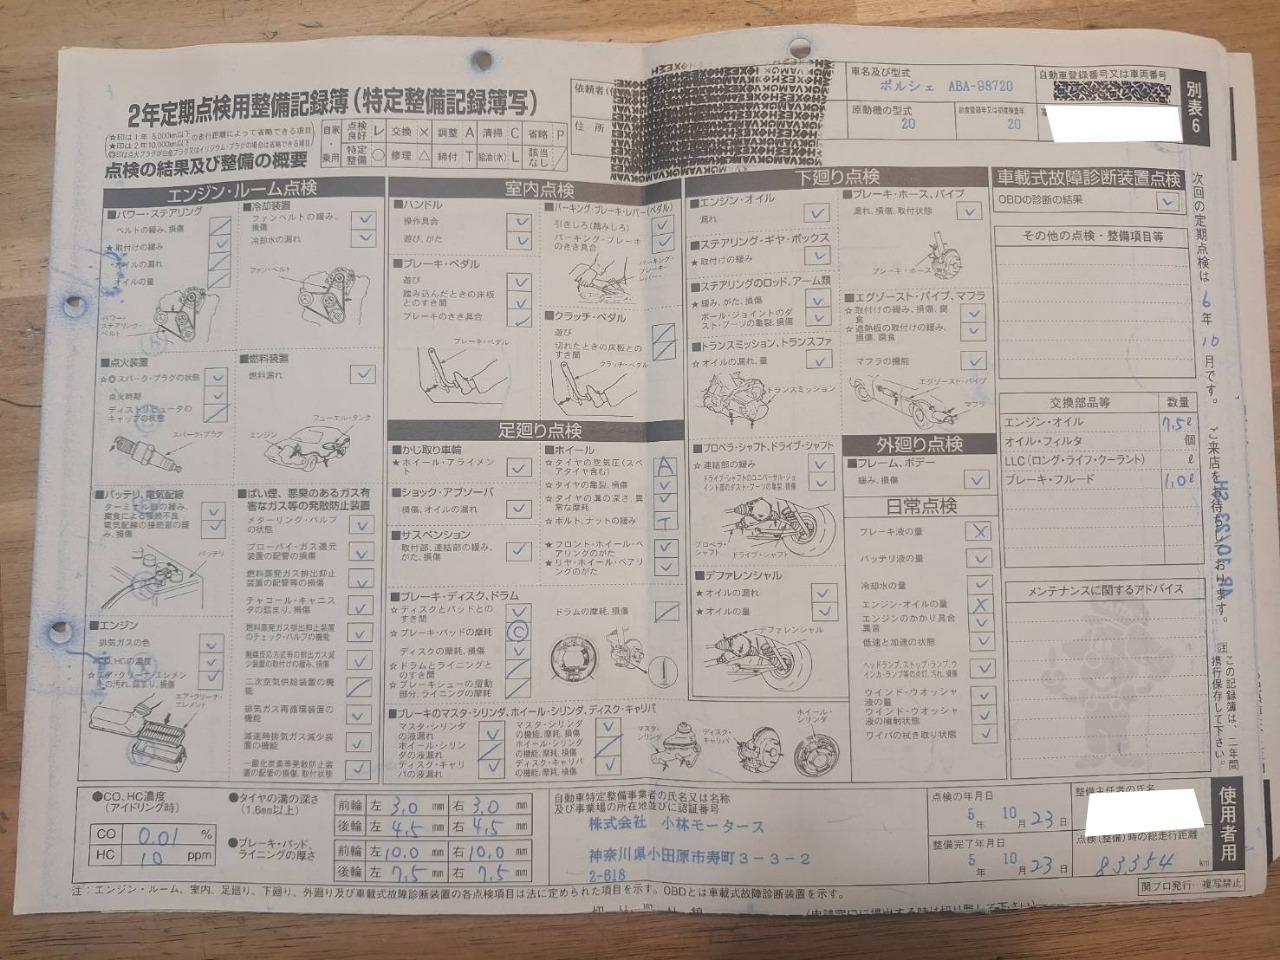 2年定期点検用整備記録簿(特定整備記録簿写)
☆印は1年 5,000km以下の走行距離によって省略できる項目
★印は2年10,000km以下
点検の結果及び整備の概要
自家・乗用
点検良好 レ 交換 × 調整 A 清掃 C 省略 P
特定整備 ○ 修理 △ 締付 T 給油(水) L 該当なし /
依頼者
住所
車名及び型式
ポルシェ ABA-98720
原動機の型式
20
初度登録年又は初度検査年
20
自動車登録番号又は車両番号
別表6
エンジン・ルーム点検
■パワー・ステアリング
ベルトの緩み、損傷
★取付けの緩み
オイルの漏れ
オイルの量
パワー・ステアリング・ベルト
■冷却装置
ファンベルトの緩み、損傷
冷却水の漏れ
ファン・ベルト
■点火装置
☆◎スパーク・プラグの状態
点火時期
ディストリビュータのキャップの状態
スパーク・プラグ
■燃料装置
燃料漏れ
フューエル・タンク
エンジン
■バッテリ、電気配線
ターミナル部の緩み、腐食による接続不良
電気配線の接続部の緩み、損傷
バッテリ
■エンジン
排気ガスの色
CO、HCの濃度
☆エア・クリーナ・エレメントの汚れ、詰まり、損傷
エア・クリーナ・エレメント
■ばい煙、悪臭のあるガス有害なガス等の発散防止装置
メターリング・バルブの状態
ブローバイ・ガス還元装置の配管の損傷
燃料蒸発ガス排出抑止装置の配管等の損傷
チャコール・キャニスタの詰まり、損傷
燃料蒸発ガス排出抑止装置のチェック・バルブの機能
触媒反応方式等の排出ガス減少装置の取付けの緩み、損傷
二次空気供給装置の機能
排気ガス再循環装置の機能
減速時排気ガス減少装置の機能
一酸化炭素等発散防止装置の配管の損傷、取付状態
室内点検
■ハンドル
操作具合
遊び、がた
■ブレーキ・ペダル
遊び
踏み込んだときの床板とのすき間
ブレーキのきき具合
ブレーキ・ペダル
■パーキング・ブレーキ・レバー(ペダル)
引きしろ(踏みしろ)
パーキング・ブレーキのきき具合
パーキング・ブレーキ・レバー
■クラッチ・ペダル
遊び
切れたときの床板とのすき間
クラッチ・ペダル
足廻り点検
■かじ取り車輪
★ホイール・アライメント
■ショック・アブソーバ
損傷、オイルの漏れ
■サスペンション
取付部、連結部の緩み、がた、損傷
■ホイール
☆タイヤの空気圧(スペアタイヤ含む) A
☆タイヤの亀裂、損傷
☆タイヤの溝の深さ、異常な摩耗
☆ボルト、ナットの緩み T
★フロント・ホイール・ベアリングのがた
★リヤ・ホイール・ベアリングのがた
■ブレーキ・ディスク、ドラム
☆ディスクとパッドとのすき間
☆ブレーキ・パッドの摩耗
ディスクの摩耗、損傷
☆ドラムとライニングとのすき間
☆ブレーキシューの摺動部分、ライニングの摩耗
ドラムの摩耗、損傷
■ブレーキのマスタ・シリンダ、ホイール・シリンダ、ディスク・キャリパ
マスタ・シリンダの液漏れ
ホイール・シリンダの液漏れ
ディスク・キャリパの液漏れ
マスタ・シリンダの機能、摩耗、損傷
ホイール・シリンダの機能、摩耗、損傷
ディスク・キャリパの機能、摩耗、損傷
マスタ・シリンダ
ディスク・キャリパ
ホイール・シリンダ
下廻り点検
■エンジン・オイル
漏れ
■ステアリング・ギヤ・ボックス
★取付けの緩み
■ステアリングのロッド、アーム類
★緩み、がた、損傷
ボール・ジョイントのダスト・ブーツの亀裂、損傷
■トランスミッション、トランスファ
☆オイルの漏れ、量
トランスミッション
■プロペラ・シャフト、ドライブ・シャフト
☆連結部の緩み
ドライブ・シャフトのユニバーサル・ジョイント部のダスト・ブーツの亀裂、損傷
プロペラ・シャフト
ドライブ・シャフト
■デファレンシャル
☆オイルの漏れ
★オイルの量
デファレンシャル
■ブレーキ・ホース、パイプ
漏れ、損傷、取付状態
ブレーキ・ホース
■エグゾースト・パイプ、マフラ
☆取付けの緩み、損傷、腐食
☆遮熱板の取付けの緩み、損傷、腐食
マフラの機能
エグゾースト・パイプ
マフラ
外廻り点検
■フレーム、ボデー
緩み、損傷
日常点検
ブレーキ液の量 X
バッテリ液の量
冷却水の量
エンジン・オイルの量 X
エンジンのかかり具合 異音
低速と加速の状態
ヘッドランプ、ストップ・ランプ、ウインカ・ランプ等の点灯、汚れ、損傷
ウインド・ウオッシャ液の量
ウインド・ウオッシャ液の噴射状態
ワイパの拭き取り状態
車載式故障診断装置点検
OBDの診断の結果
その他の点検・整備項目等
交換部品等 数量
エンジン・オイル 7.5ℓ
オイル・フィルタ 個
LLC(ロング・ライフ・クーラント) ℓ
ブレーキ・フルード 1.0ℓ
メンテナンスに関するアドバイス
次回の定期点検は 6年 10月です。ご来店をお待ちしております。
この記録簿は、二年間携行保存して下さい。
使用者用
●CO、HC濃度(アイドリング時)
CO 0.01 %
HC 10 ppm
●タイヤの溝の深さ(1.6mm以上)
前輪 左 3.0 mm 右 3.0 mm
後輪 左 4.5 mm 右 4.5 mm
●ブレーキ・パッド、ライニングの厚さ
前輪 左 10.0 mm 右 10.0 mm
後輪 左 7.5 mm 右 7.5 mm
自動車特定整備事業者の氏名又は名称及び事業場の所在地並びに認証番号
株式会社 小林モータース
神奈川県小田原市寿町3-3-2
2-618
点検の年月日
5年 10月 23日
整備完了年月日
5年 10月 23日
整備主任者の氏名
点検(整備)時の総走行距離
83354 km
注:エンジン・ルーム、室内、足廻り、下廻り、外廻り及び車載式故障診断装置の各点検項目は法に定められた項目を示す。OBDとは車載式故障診断装置を示す。
関プロ発行 複写禁止
切り取り線